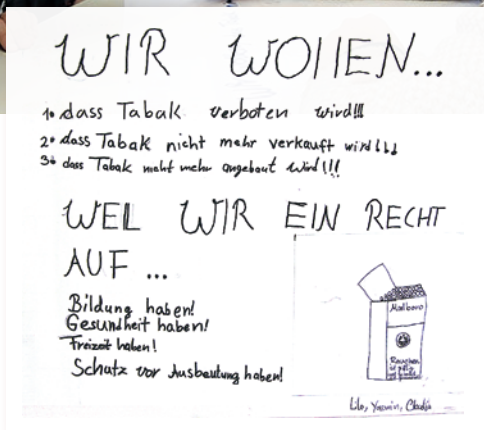 WIR WOLLEN...
1. dass Tabak verboten wird!!!
2. dass Tabak nicht mehr verkauft wird!!!
3. dass Tabak nicht mehr angebaut wird!!!
WEL WIR EIN RECHT
AUF ...
Bildung haben!
Gesundheit haben!
Freizeit haben!
Schutz vor Ausbeutung haben!
Malboro
Rauchen
Lilo, Yasmin,